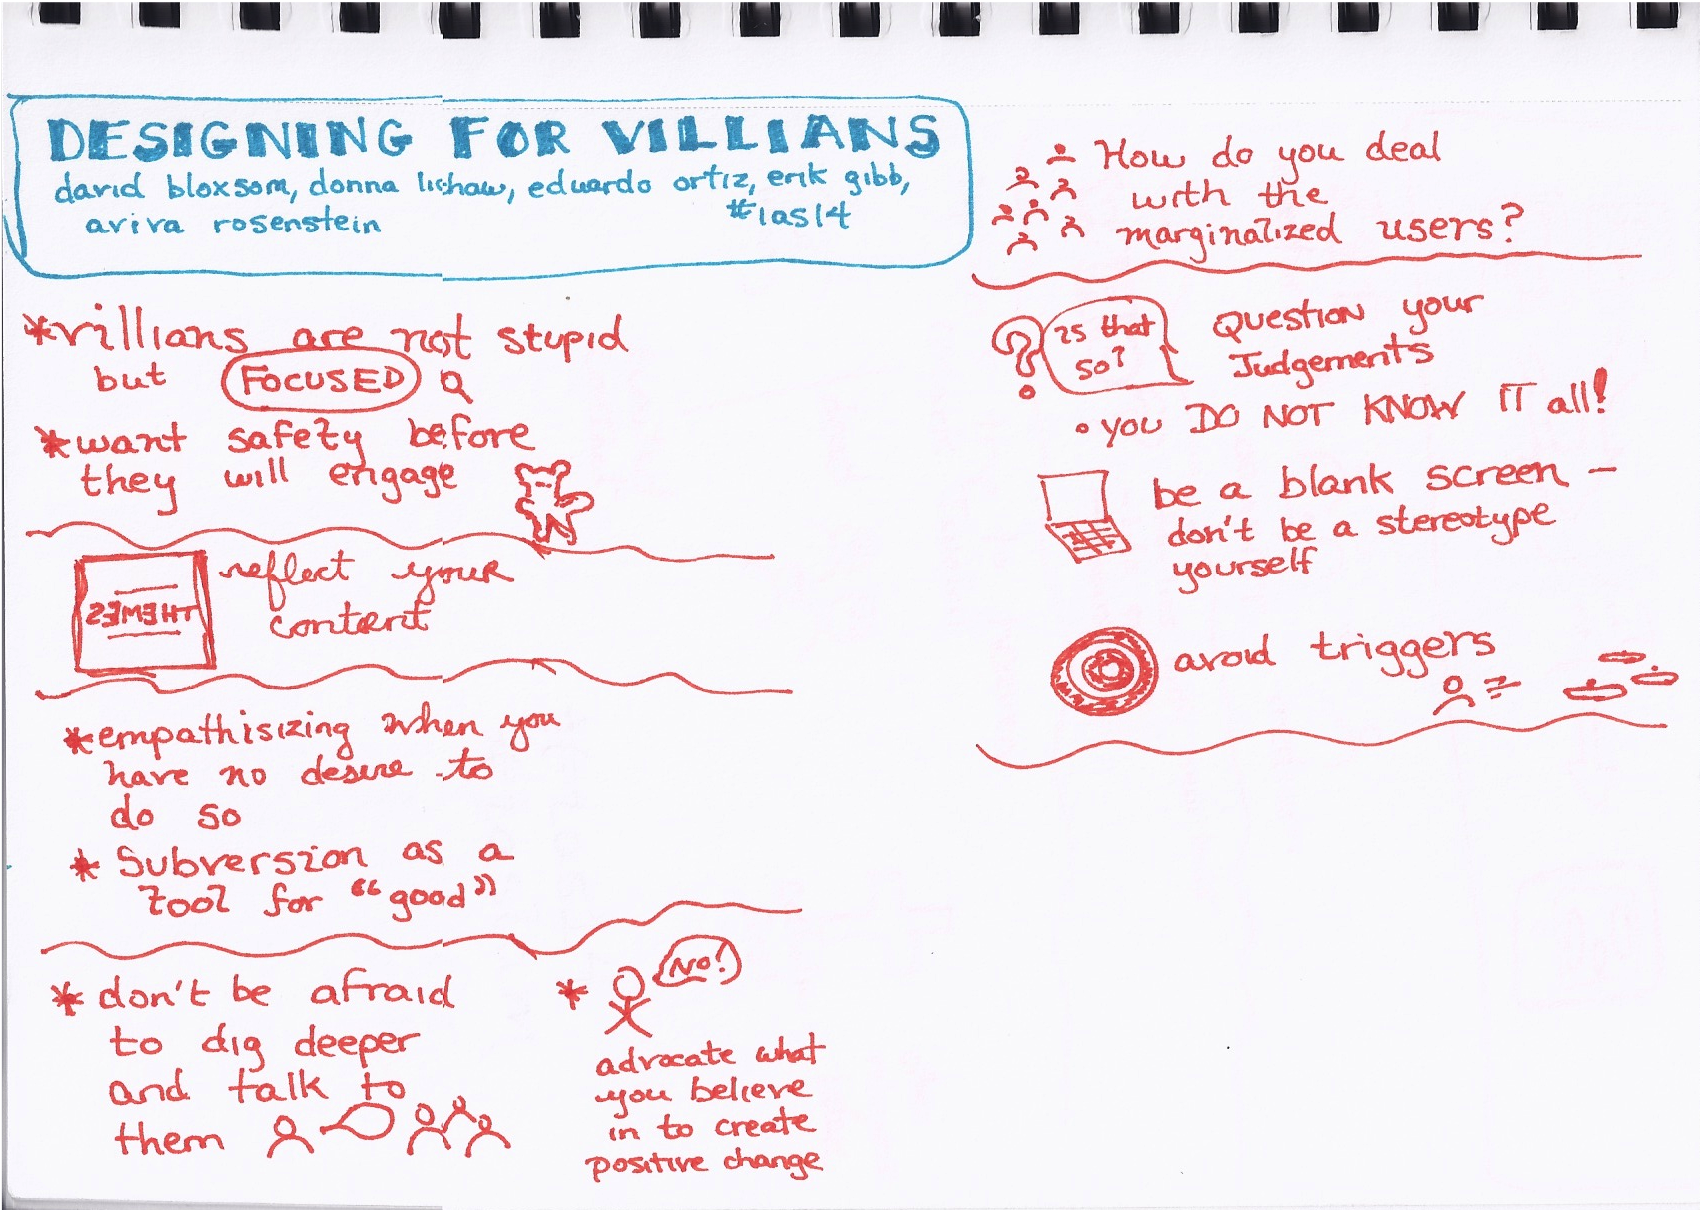 DESIGNING FOR VILLIANS
david bloxsom, donna lichaw, eduardo ortiz, erik gibb,
aviva rosenstein #ias14
*villians are not stupid
but FOCUSED
*want safety before
they will engage
THEMES
reflect your
content
*empathisizing when you
have no desire to
do so
* Subversion as a
tool for "good"
* don't be afraid
to dig deeper
and talk to
them
*
NO!
advocate what
you believe
in to create
positive change
How do you deal
with the
marginalized users?
is that
so?
Question your
Judgements
• you DO NOT KNOW IT all!
be a blank screen –
don't be a stereotype
yourself
avoid triggers